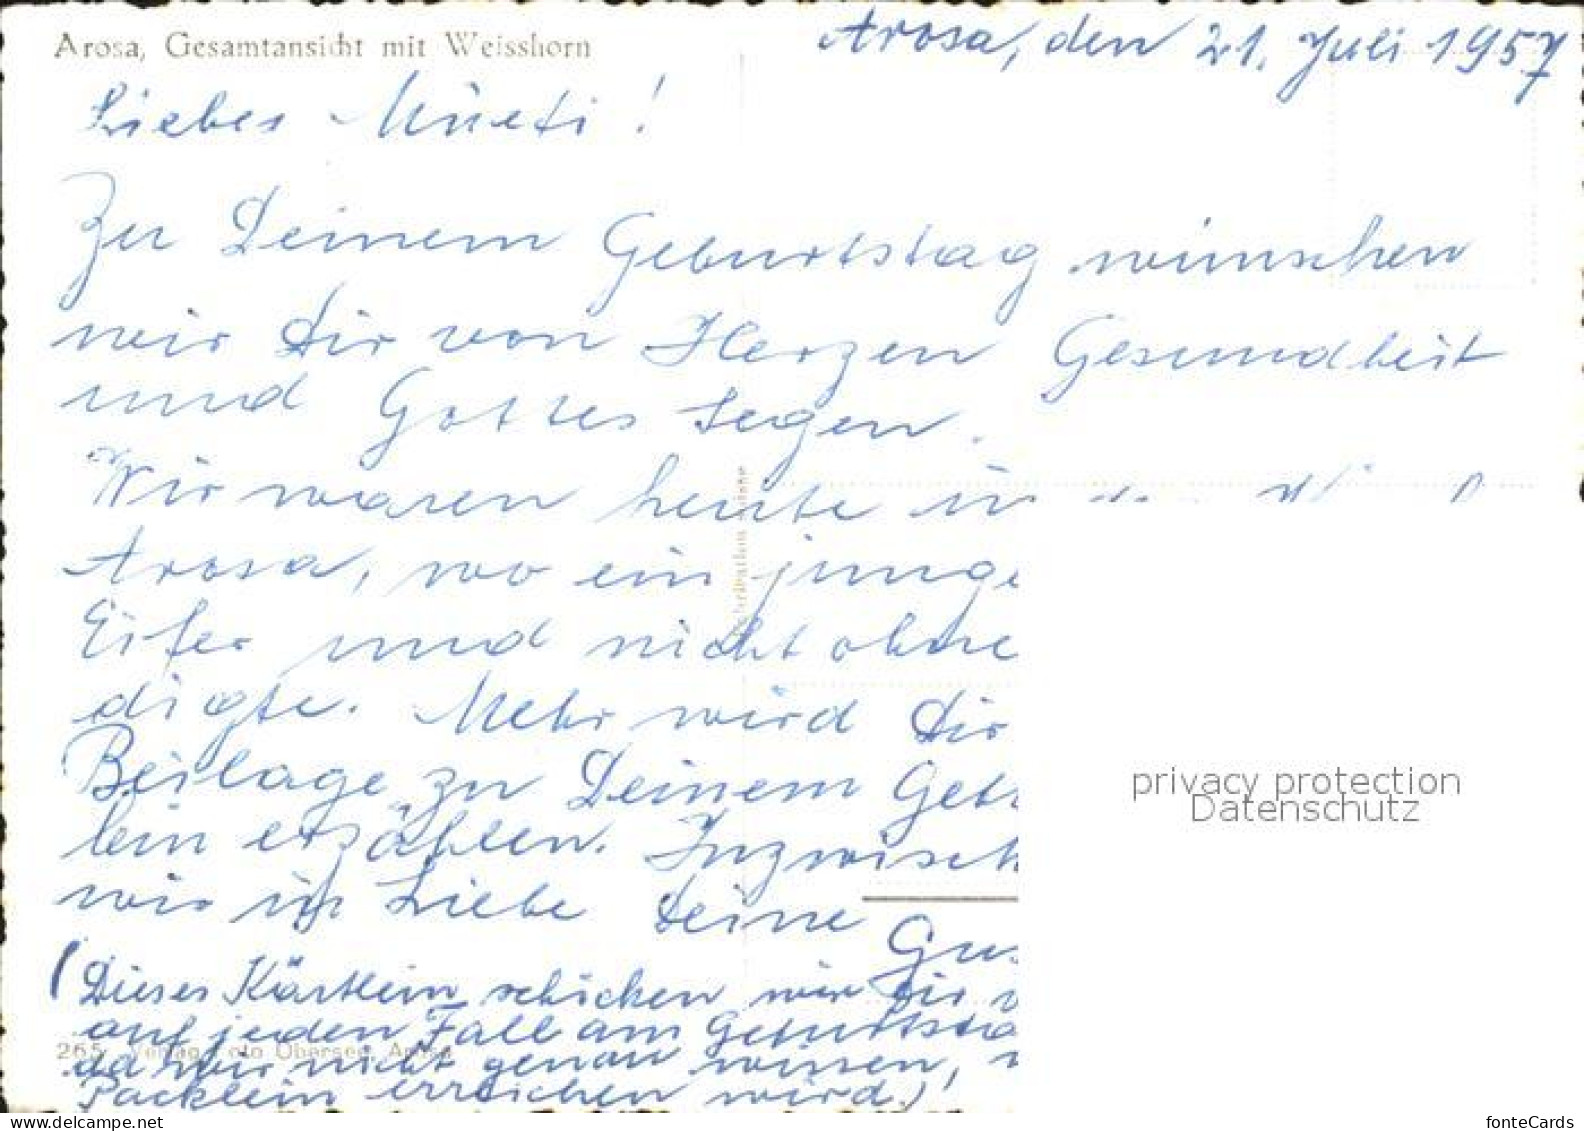 Arosa, Gesamtansicht mit Weisshorn
Arosa, den 21. Juli 1957
Liebes Müeti!
Zu Deinem Geburtstag wünschen
wir Dir von Herzen Gesundheit
und Gottes Segen.
Wir waren heute in
Arosa, wo ein junge
Eifer und nicht ohne
digte. Mehr wird Dir
Beilage zu Deinem Geb
lein erzählen. Inzwisch
wir in Liebe Deine
Gu
(Dieses Kärtlein schicken wir Dir
auf jeden Fall am Geburtsta
265 Verlag Foto Obersee, Arosa
da wir nicht genau wissen,
Päcklein erreichen wird.)
privacy protection
Datenschutz
www.delcampe.net
fonteCards